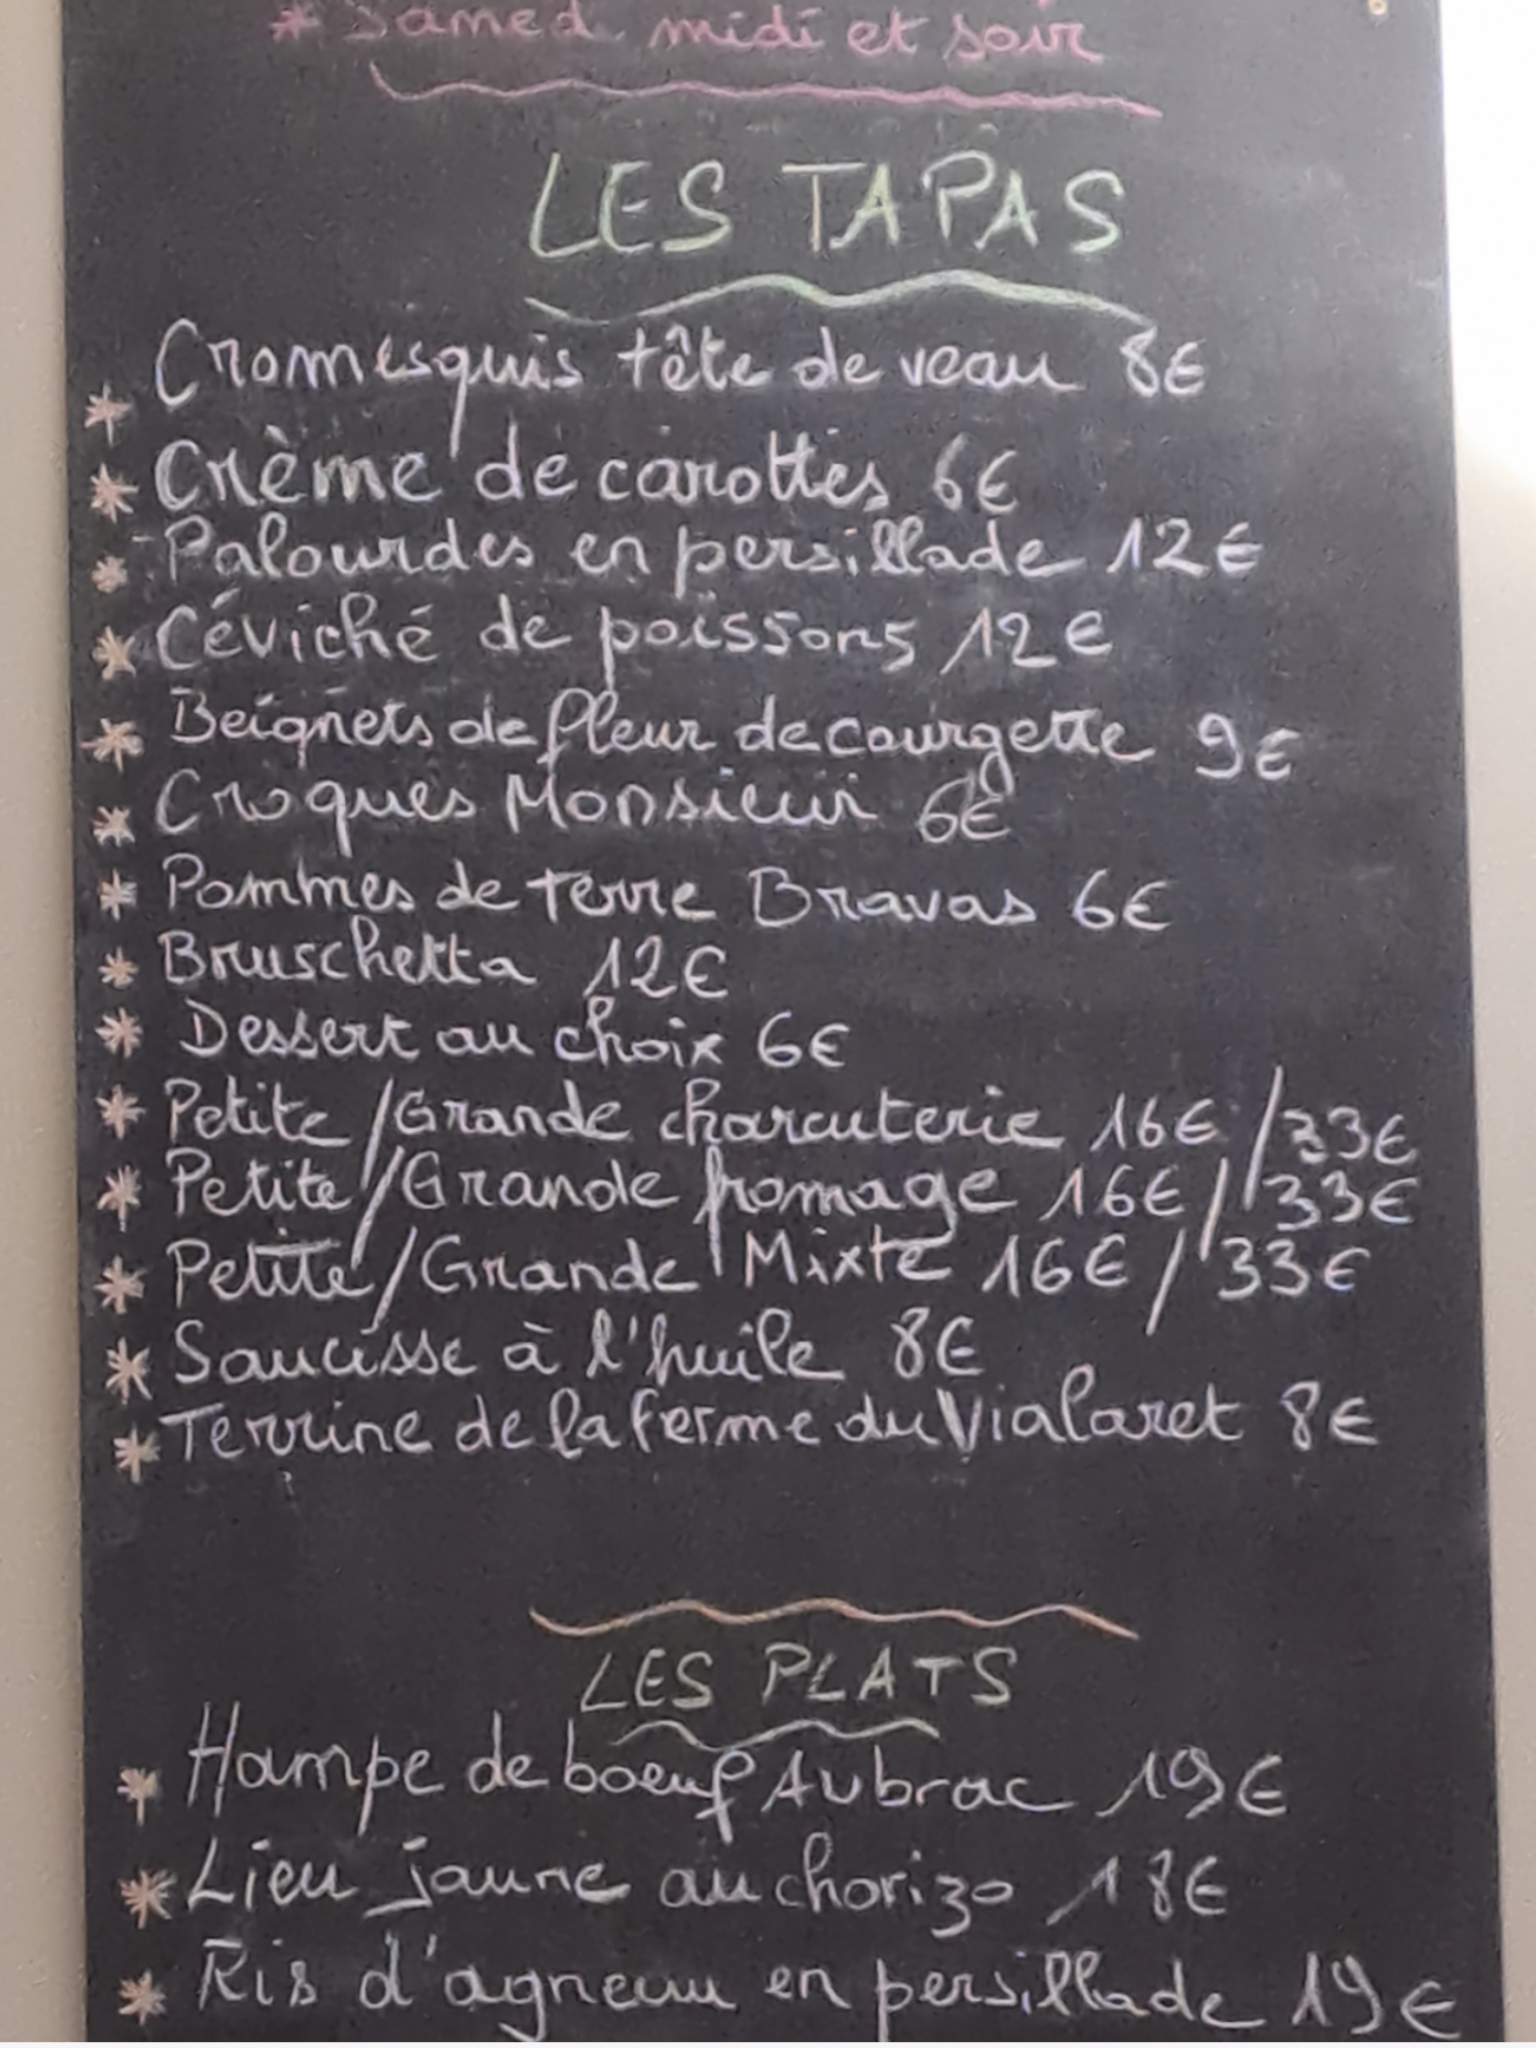 * Samed. midi et soir
LES TAPAS
* Cromesquis tête de veau 8€
* Crème de carottes 6€
* Palourdes en persillade 12€
* Céviché de poissons 12€
* Beignets de fleur de courgette 9€
* Croques Monsieur 6€
* Pommes de terre Bravas 6€
* Bruschetta 12€
* Dessert au choix 6€
* Petite/Grande charcuterie 16€/33€
* Petite/Grande fromage 16€/33€
* Petite/Grande Mixte 16€/33€
* Saucisse à l'huile 8€
* Terrine de la ferme du Vialaret 8€
LES PLATS
* Hampe de boeuf Aubrac 19€
* Lieu jaune au chorizo 18€
* Ris d'agneau en persillade 19€